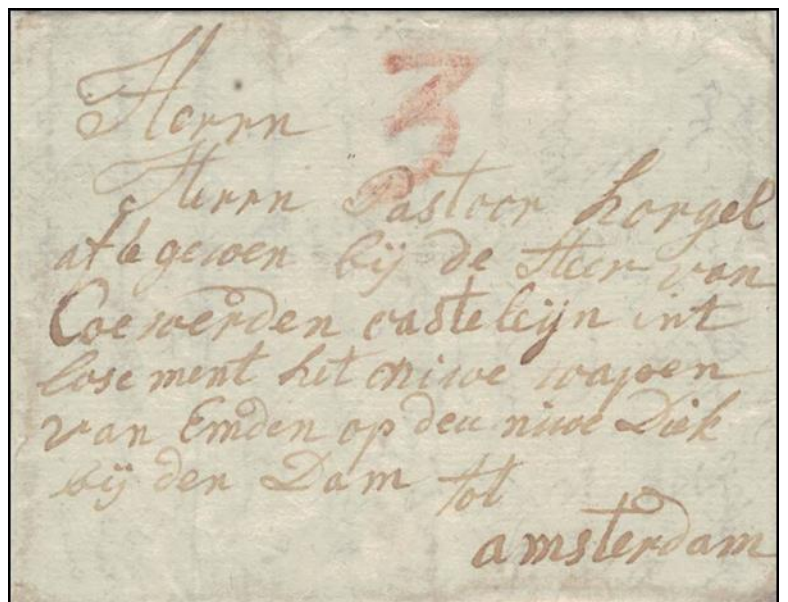 3
Herrn
Herrn Pastoor horgel
af te gewen bij de Heer van
Coewerden casteleijn int
lose ment het niwe wapen
van Emden op den niwe Diek
bij den Dam tot
amsterdam